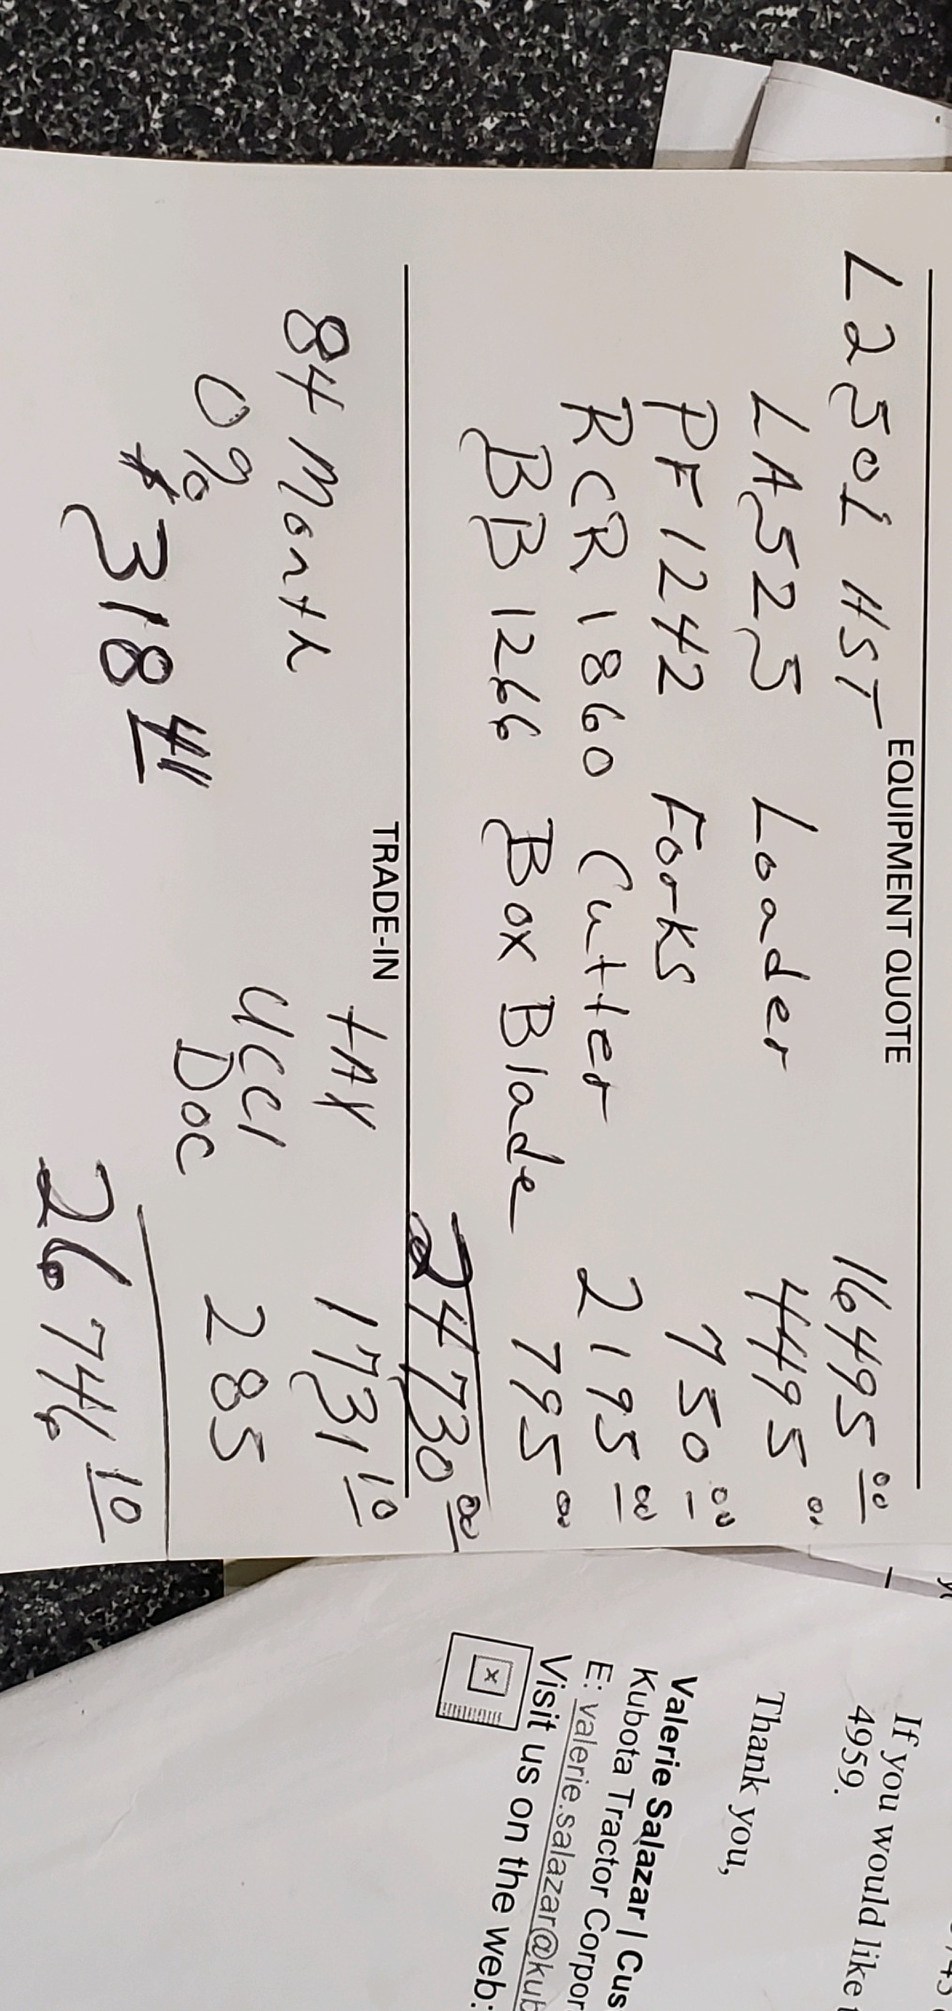 EQUIPMENT QUOTE
L2501 HST 16495.00
LA525 Loader 4495.00
PF1242 Forks 750.00
RCR1860 Cutter 2195.00
BB1266 Box Blade 795.00
24730.00
TRADE-IN
tAX 1731.10
84 Month
UCC1
0% Doc 285
$318.41
26746.10
If you would like
4959.
Thank you,
Valerie Salazar | Cus
Kubota Tractor Corpor
E: valerie.salazar@kub
Visit us on the web: